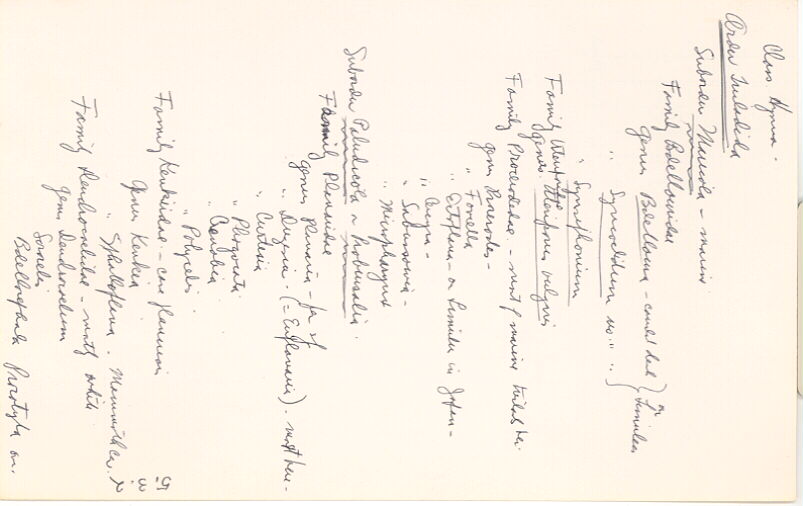 Class Hymna -
Order Tricladida
Suborder Maricola - marine
Family Bdellouridae
genus Bdelloura - caudal deal } on
" Syncoelidium no " " } Limulus
Family Uteriporidae
genus Uteriporus vulgaris
" Synsiphonium
Family Procerodidae - most of marine triclads here
genus Procerodes -
" Foviella
" Ectoplana - on Limulus in Japan -
" Cercyra -
" Sabussowia -
" Micropharynx
Suborder Paludicola or Probursalia.
Family Planariidae
genus Planaria - few sp
" Dugesia. (= Euplanaria). most here -
" Curtisia
" Phagocata
" Crenobia
" Polycelis
Family Kenkiidae - cave planarians
Genus Kenkia
" Sphalloplana - Mammoth Cave
Family Dendrocoelidae - mostly white
genus Dendrocoelum
Sorocelis
Bdellocephala Procotyla on.